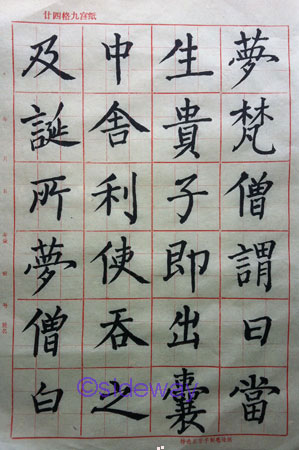 紙宮九格四廿
夢梵僧謂曰當
生貴子即出囊
中舍利使吞之
及誕所夢僧白
©sideway